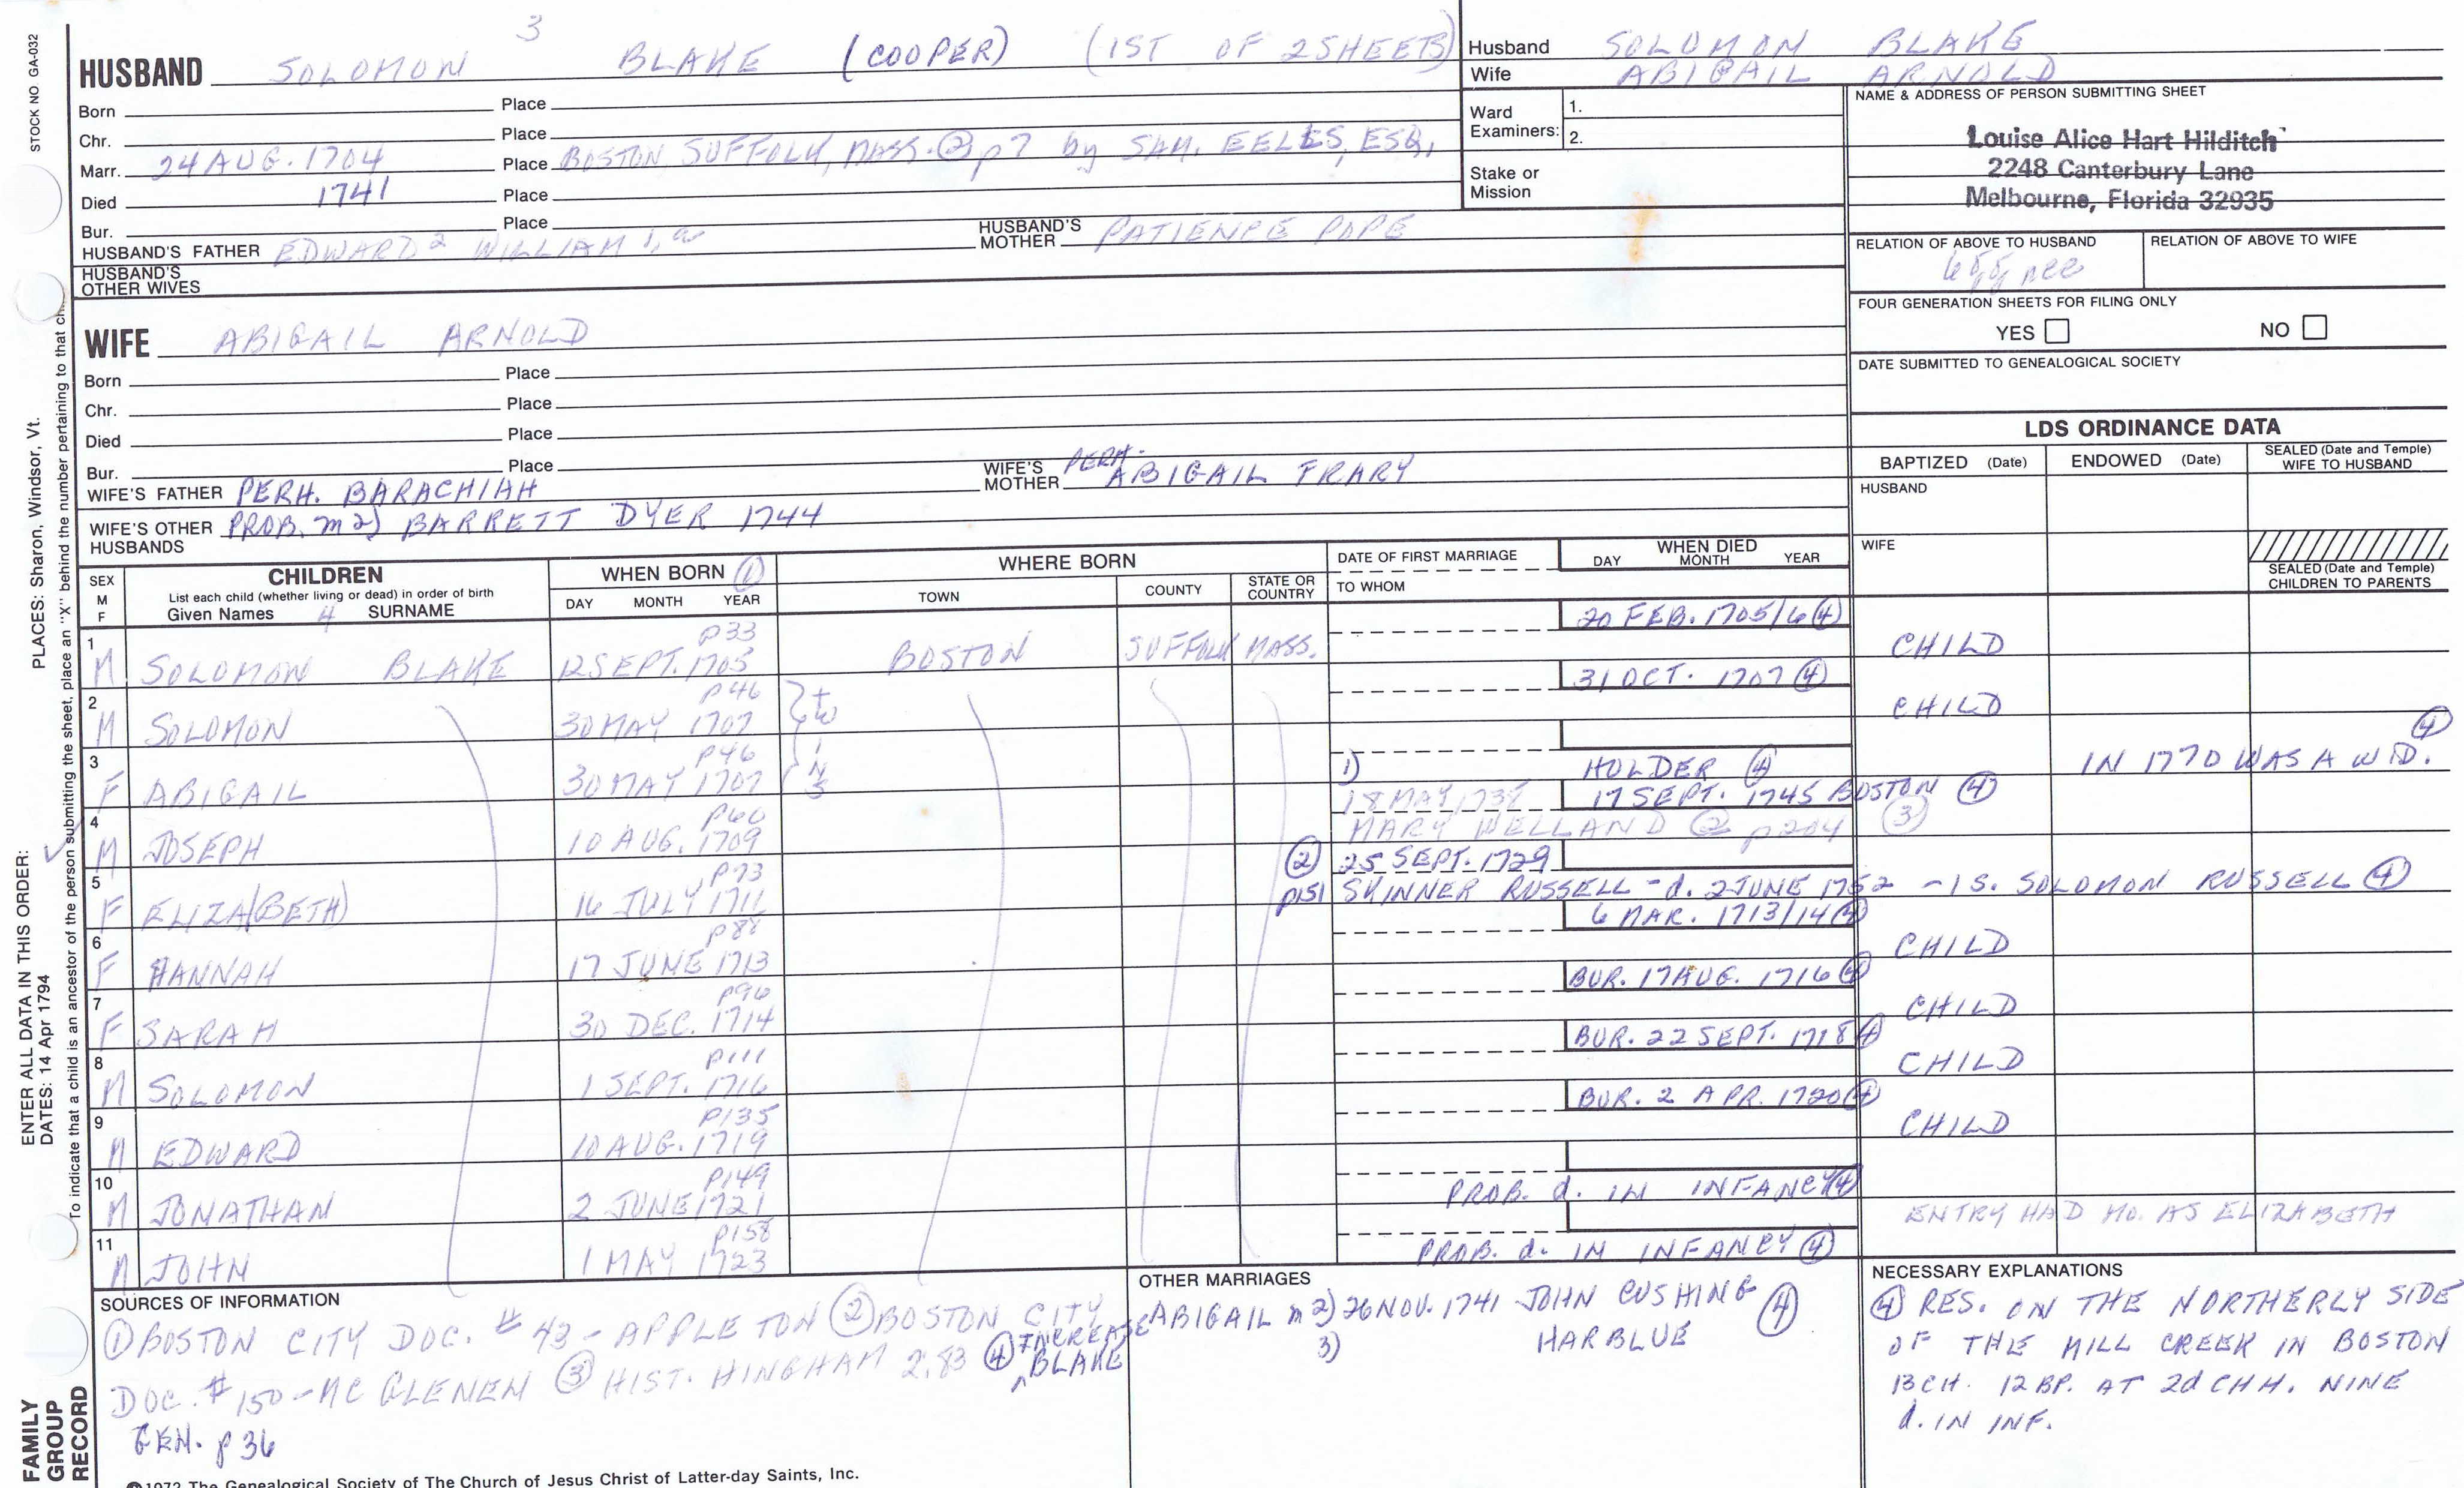 STOCK NO GA-032
PLACES: Sharon, Windsor, Vt.
ENTER ALL DATA IN THIS ORDER:
DATES: 14 Apr 1794
To indicate that a child is an ancestor of the person submitting the sheet, place an "X" behind the number pertaining to that
FAMILY
GROUP
RECORD
3
HUSBAND SOLOMON BLAKE (COOPER) (1ST OF 2 SHEETS)
Born Place
Chr. Place
Marr. 24 AUG. 1704 Place BOSTON SUFFOLK, MASS. ② p7 by SAM. EELLS, ESQ.
Died 1741 Place
Bur. Place
HUSBAND'S FATHER EDWARD 2 WILLIAM 1, a HUSBAND'S MOTHER PATIENCE POPE
HUSBAND'S
OTHER WIVES
WIFE ABIGAIL ARNOLD
Born Place
Chr. Place
Died Place
Bur. Place
WIFE'S FATHER PERH. BARACHIAH WIFE'S MOTHER PERH. ABIGAIL FRARY
WIFE'S OTHER HUSBANDS PROB. m 2) BARRETT DYER 1744
Husband SOLOMON BLAKE
Wife ABIGAIL ARNOLD
Ward Examiners: 1.
2.
Stake or Mission
NAME & ADDRESS OF PERSON SUBMITTING SHEET
Louise Alice Hart Hilditch
2248 Canterbury Lane
Melbourne, Florida 32935
RELATION OF ABOVE TO HUSBAND RELATION OF ABOVE TO WIFE
FOUR GENERATION SHEETS FOR FILING ONLY
YES NO
DATE SUBMITTED TO GENEALOGICAL SOCIETY
LDS ORDINANCE DATA
BAPTIZED (Date) ENDOWED (Date) SEALED (Date and Temple) WIFE TO HUSBAND
HUSBAND
WIFE
SEALED (Date and Temple) CHILDREN TO PARENTS
SEX M F
CHILDREN
List each child (whether living or dead) in order of birth
Given Names 4 SURNAME
WHEN BORN ①
DAY MONTH YEAR
WHERE BORN
TOWN COUNTY STATE OR COUNTRY
DATE OF FIRST MARRIAGE
TO WHOM
WHEN DIED
DAY MONTH YEAR
p33 20 FEB. 1705/6 ④
1 M SOLOMON BLAKE 12 SEPT. 1705 BOSTON SUFFOLK MASS. CHILD
p46 31 OCT. 1707 ④
2 M SOLOMON 30 MAY 1707 TWINS CHILD
p46 ④
3 F ABIGAIL 30 MAY 1707 1) HOLDER ④ IN 1770 WAS A WID.
p60 18 MAY 1738 17 SEPT. 1745 BOSTON ④
4 M JOSEPH 10 AUG. 1709 MARY WELLAND ② p204 ③
p73 ② 25 SEPT. 1729
5 F ELIZA(BETH) 16 JULY 1711 p151 SKINNER RUSSELL - d. 2 JUNE 1752 - 1 S. SOLOMON RUSSELL ④
p88 6 MAR. 1713/14 ④
6 F HANNAH 17 JUNE 1713 CHILD
p96 BUR. 17 AUG. 1716 ④
7 F SARAH 30 DEC. 1714 CHILD
p111 BUR. 22 SEPT. 1718 ④
8 M SOLOMON 1 SEPT. 1716 CHILD
p135 BUR. 2 APR. 1720 ④
9 M EDWARD 10 AUG. 1719 CHILD
p149
10 M JONATHAN 2 JUNE 1721 PROB. d. IN INFANCY ④ ENTRY HAD MO. AS ELIZABETH
p158
11 M JOHN 1 MAY 1723 PROB. d. IN INFANCY ④
SOURCES OF INFORMATION
① BOSTON CITY DOC. # 43 - APPLETON ② BOSTON CITY
DOC. # 150 - MC GLENEN ③ HIST. HINGHAM 2.83 ④ INCREASE BLAKE
GEN. p 36
OTHER MARRIAGES
ABIGAIL m 2) 26 NOV. 1741 JOHN CUSHING ④
3) HARBLUE
NECESSARY EXPLANATIONS
④ RES. ON THE NORTHERLY SIDE
OF THE MILL CREEK IN BOSTON
13 CH. 12 BP. AT 2d CHH. NINE
d. IN INF.
1972 The Genealogical Society of The Church of Jesus Christ of Latter-day Saints, Inc.